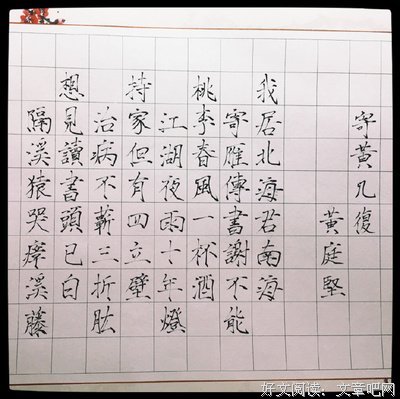 寄黃几復
黃庭堅
我居北海君南海
寄雁傳書謝不能
桃李春風一杯酒
江湖夜雨十年燈
持家但有四立壁
治病不蘄三折肱
想見讀書頭已白
隔溪猿哭瘴溪藤
好文阅读：文章吧网